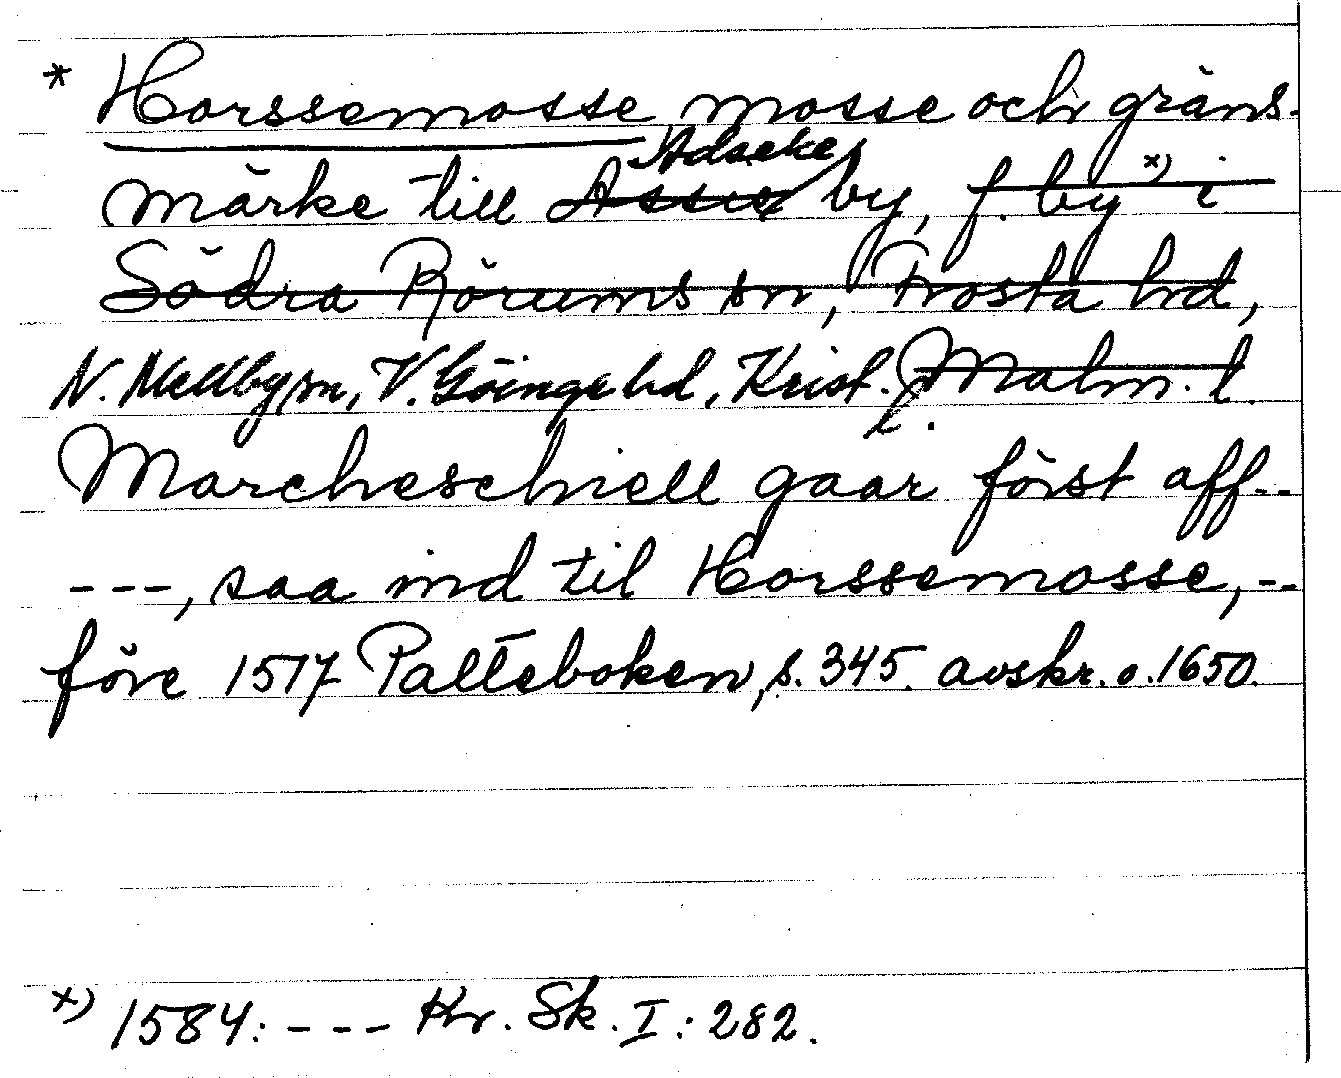 * Horssemosse mosse och gräns-
Adseke
märke till Assie by, f. by x) i
Södra Rörums sn, Frosta hd,
N. Mellby sn, V. Göinge hd, Krist. Malm. l.
l.
Marcheschiell gaar först aff--
---, saa ind til Horssemosse, --
före 1517 Palteboken, s. 345. avskr. o. 1650.
x) 1584: --- Kr. Sk. I: 282.